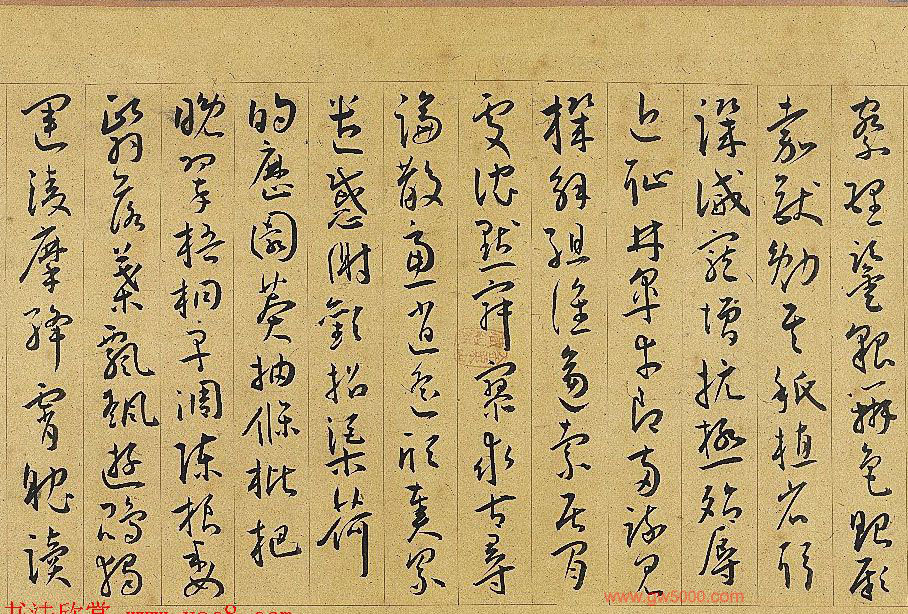 察理鑒貌辨色貽厥
嘉猷勉其祗植省躬
譏誡寵增抗極殆辱
近恥林皋幸即兩疏見
機解組誰逼索居閑
處沉默寂寥求古尋
論散慮逍遙欣奏累
遣慼謝歡招渠荷
的歷園莽抽條枇杷
晚翠梧桐早凋陳根委
翳落葉飄颻遊鵾獨
運凌摩絳霄耽讀
www.gw5000.com
书法欣赏 www.yac8.com